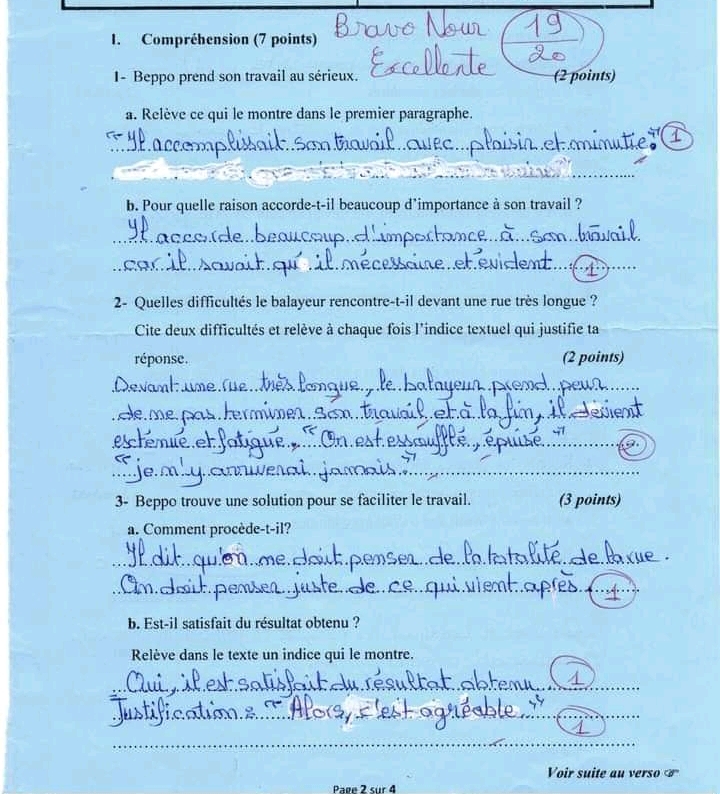 I. Compréhension (7 points) Bravo Nour 19
Excellente 20
1- Beppo prend son travail au sérieux. (2 points)
a. Relève ce qui le montre dans le premier paragraphe.
"Il accomplissait son travail avec plaisir et minutie." 1
b. Pour quelle raison accorde-t-il beaucoup d'importance à son travail ?
Il accorde beaucoup d'importance à son travail
car il savait qu'il nécessaire et évident 1
2- Quelles difficultés le balayeur rencontre-t-il devant une rue très longue ?
Cite deux difficultés et relève à chaque fois l'indice textuel qui justifie ta
réponse. (2 points)
Devant une rue très longue, le balayeur prend peur
de ne pas terminer son travail et à la fin, il devient
exténué et fatigué. "On est essoufflé, épuisé"
"je n'y arriverai jamais." 2
3- Beppo trouve une solution pour se faciliter le travail. (3 points)
a. Comment procède-t-il?
Il dit qu'on ne doit penser de la totalité de la rue.
On doit penser juste de ce qui vient après. 1
b. Est-il satisfait du résultat obtenu ?
Relève dans le texte un indice qui le montre.
Oui, il est satisfait du résultat obtenu 1
Justification : "Alors, c'est agréable." 1
Voir suite au verso ☞
Page 2 sur 4